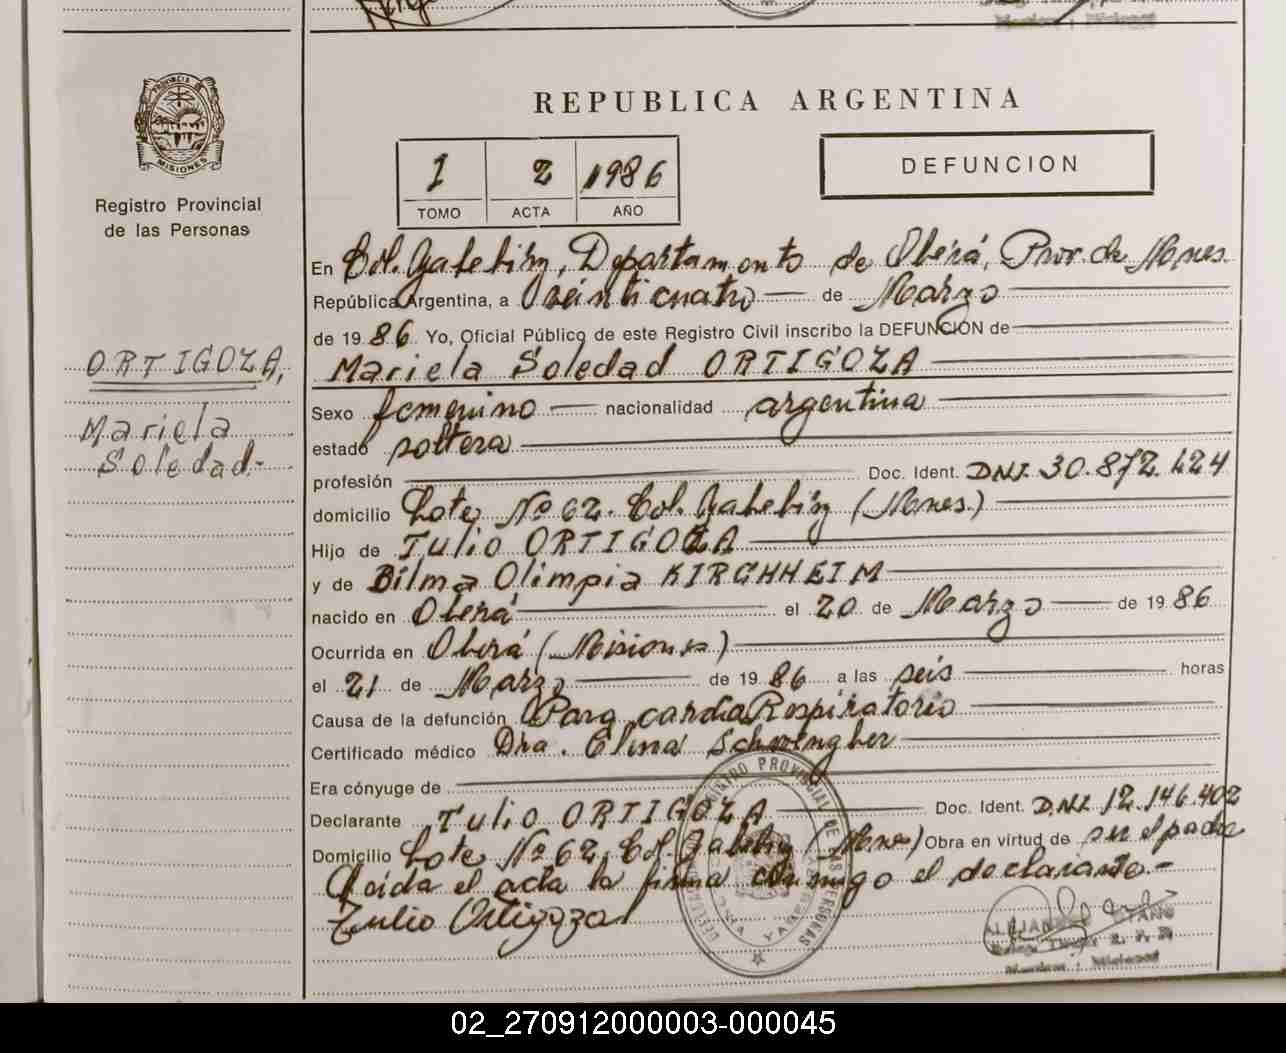 PROVINCIA DE
MISIONES
Registro Provincial
de las Personas
ORTIGOZA,
Mariela
Soledad.-
REPUBLICA ARGENTINA
1 2 1986
TOMO ACTA AÑO
DEFUNCION
En Col. Yabebiry, Departamento de Oberá, Prov. de Mnes.
República Argentina, a veinticuatro de Marzo
de 1986 Yo, Oficial Público de este Registro Civil inscribo la DEFUNCIÓN de
Mariela Soledad ORTIGOZA
Sexo femenino nacionalidad argentina
estado soltera
profesión Doc. Ident. DNI. 30.872.424
domicilio Lote Nº 62. Col. Yabebiry (Mnes.)
Hijo de Tulio ORTIGOZA
y de Bilma Olimpia KIRGHHEIM
nacido en Oberá el 20 de Marzo de 1986
Ocurrida en Oberá (Misiones)
el 21 de Marzo de 1986 a las seis horas
Causa de la defunción Paro cardio Respiratorio
Certificado médico Dra. Elina Schwengber
Era cónyuge de
Declarante Tulio ORTIGOZA Doc. Ident. D.N.I. 12.146.402
Domicilio Lote Nº 62, Col. Yabebiry (Mnes) Obra en virtud de ser el padre
Leida el acta la firma conmigo el declarante.-
Tulio Ortigoza
REGISTRO PROVINCIAL DE LAS PERSONAS
02_270912000003-000045